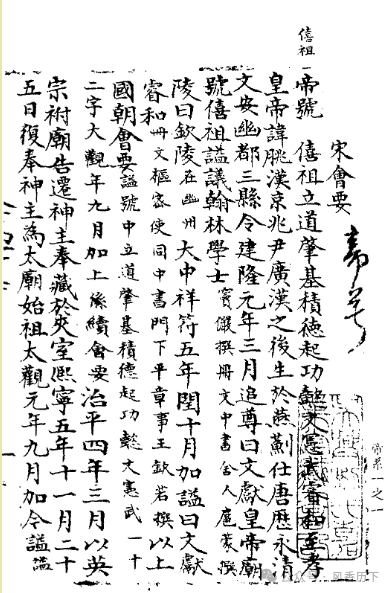 宋會要
僖祖
帝號 僖祖立道肇基積德起功懿文憲武睿和至孝
皇帝諱朓漢京兆尹廣漢之後生於燕薊仕唐歷永清
文安幽都三縣令建隆元年三月追尊曰文獻皇帝廟
號僖祖謚議翰林學士竇儼撰冊文中書舍人扈蒙撰
陵曰欽陵在幽州大中祥符五年閏十月加謚曰文獻
睿和冊文樞密使同中書門下平章事王欽若撰以上
國朝會要謚號中立道肇基積德起功懿文憲武一十
二字大觀年九月加上後續會要治平四年三月以英
宗祔廟告遷神主奉藏於夾室熙寧五年十一月二十
五日復奉神主為太廟始祖太觀元年九月加今謚謚
帝系一之一
公众号·风香历下